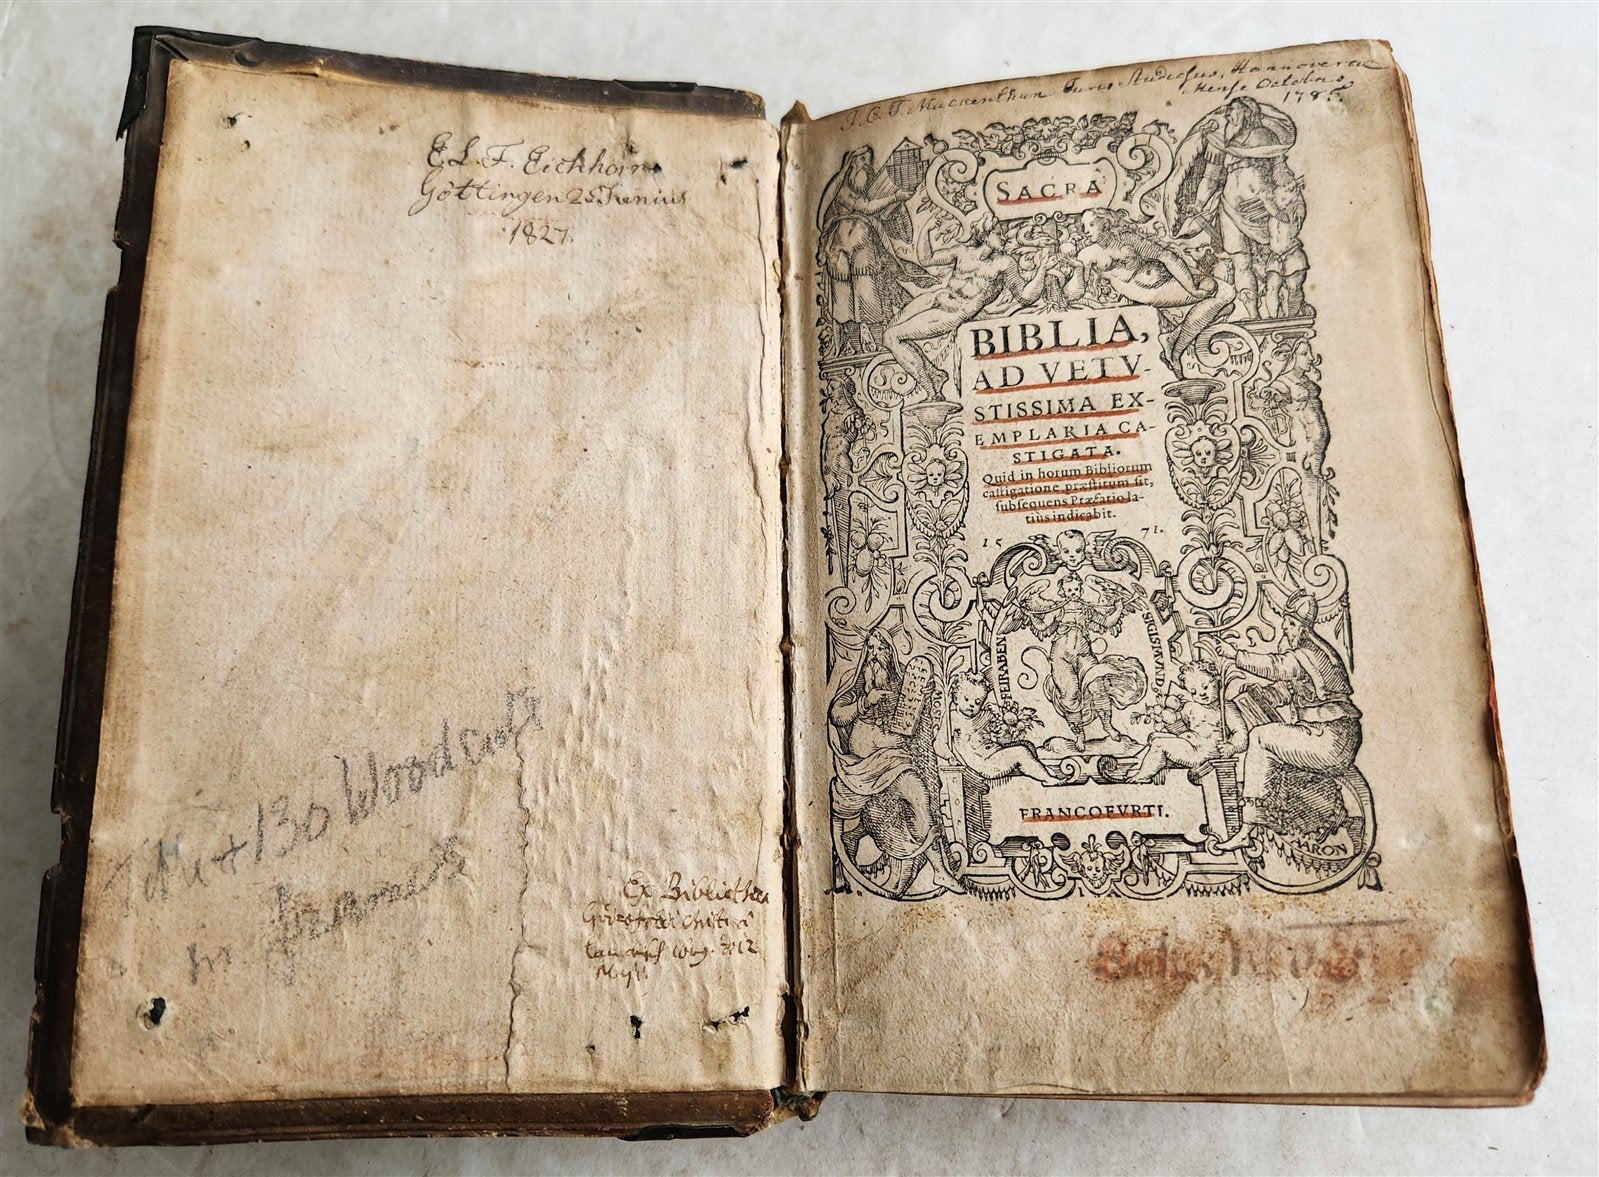 E. L. F. Eichhorn
Göttingen 25 Junius
1827.
+130 Woodcuts
in
Ex Bibliotheca
J. C. T. Muckenthum Juris Studiosus, Hannoverae
Mense Octobris
SACRA
BIBLIA,
AD VETV-
STISSIMA EX-
EMPLARIA CA-
STIGATA.
Quid in horum Bibliorum
castigatione præstitum sit,
subsequens Præfatio la-
tiùs indicabit.
15 71.
FEIRABEN
SIGISMVND
MOISES
FRANCOFVRTI.
AARON